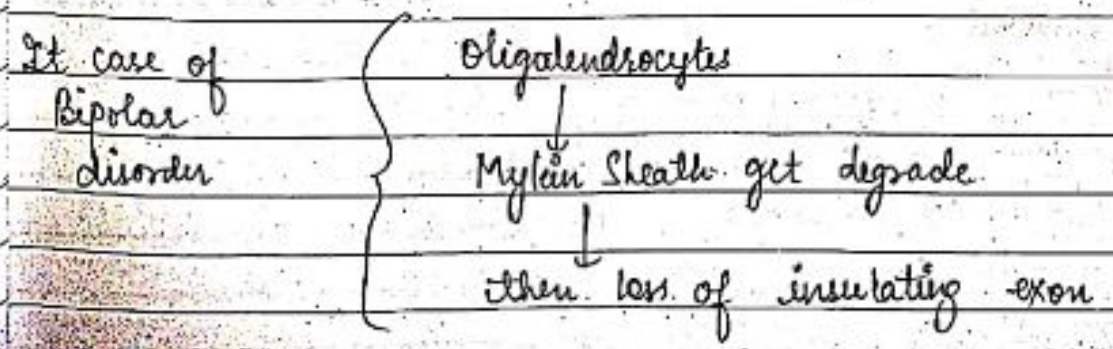 It case of
Bipolar
disorder
Oligalendrocytes
↓
Mylein Sheath get degrade
↓
then loss of insulating exon